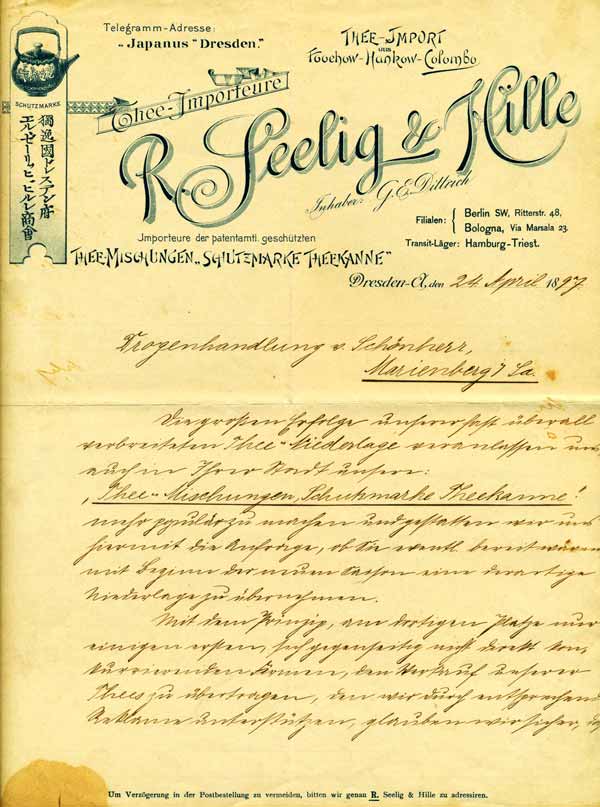 Telegramm-Adresse:
„Japanus" Dresden."
Thee-Import
von
Foochow-Hankow-Colombo
SCHUTZMARKE
獨逸國ドレスデン府
エルゼーリッヒ,ヒルレ商會
Thee-Importeure
R. Seelig & Hille
Inhaber: G. E. Dittrich
Filialen: Berlin SW, Ritterstr. 48,
Bologna, Via Marsala 23.
Transit-Läger: Hamburg-Triest.
Importeure der patentamtl. geschützten
Thee-Mischungen „Schutzmarke Theekanne"
Dresden-A, den 24. April 1897.
Drogenhandlung v. Schönherr,
Marienberg i/ Sa.
Die großen Erfolge unserer fast überall
verbreiteten Thee-Niederlage veranlassen uns
auch in Ihrer Stadt unsere:
„Thee-Mischungen, Schutzmarke Theekanne"
mehr populär zu machen und gestatten wir uns
hiermit die Anfrage, ob Sie eventl. bereit wären
mit Beginn der neuen Saison eine derartige
Niederlage zu übernehmen.
Mit dem Prinzip, am dortigen Platze nur
einigen ersten, sich gegenseitig nicht direkt kon-
kurrierenden Firmen, den Verkauf unserer
Thees zu übertragen, den wir durch entsprechend
Reklame unterstützen, glauben wir sicher, da
Um Verzögerung in der Postbestellung zu vermeiden, bitten wir genau R. Seelig & Hille zu adressiren.